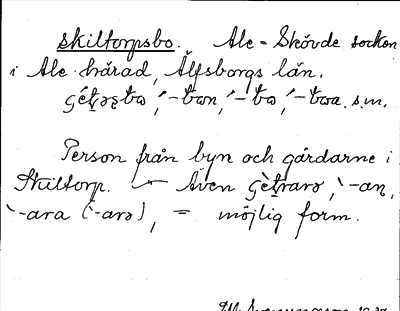 Skiltorpsbo. Ale-Skövde socken
i Ale härad, Älfsborgs län.
-bon, -bo, -boa. s.m.
Person från byn och gårdarne i
Skiltorp. — Även -an,
-ara (-arə), = möjlig form.